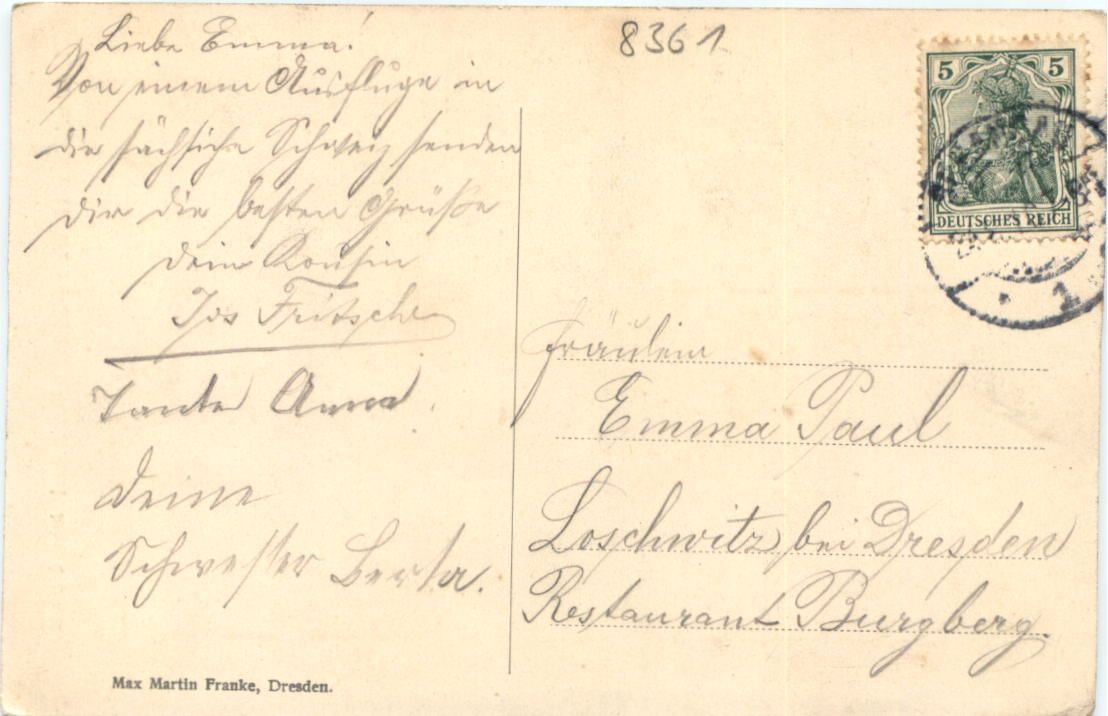 8361
Liebe Emma!
Von einem Ausfluge in
die sächsische Schweiz senden
dir die besten Grüße
dein Kousin
Jos Fritsche
Tante Anna.
Deine
Schwester Berta.
Max Martin Franke, Dresden.
5 5
DEUTSCHES REICH
1
Fräulein
Emma Paul
Loschwitz bei Dresden
Restaurant Burgberg.